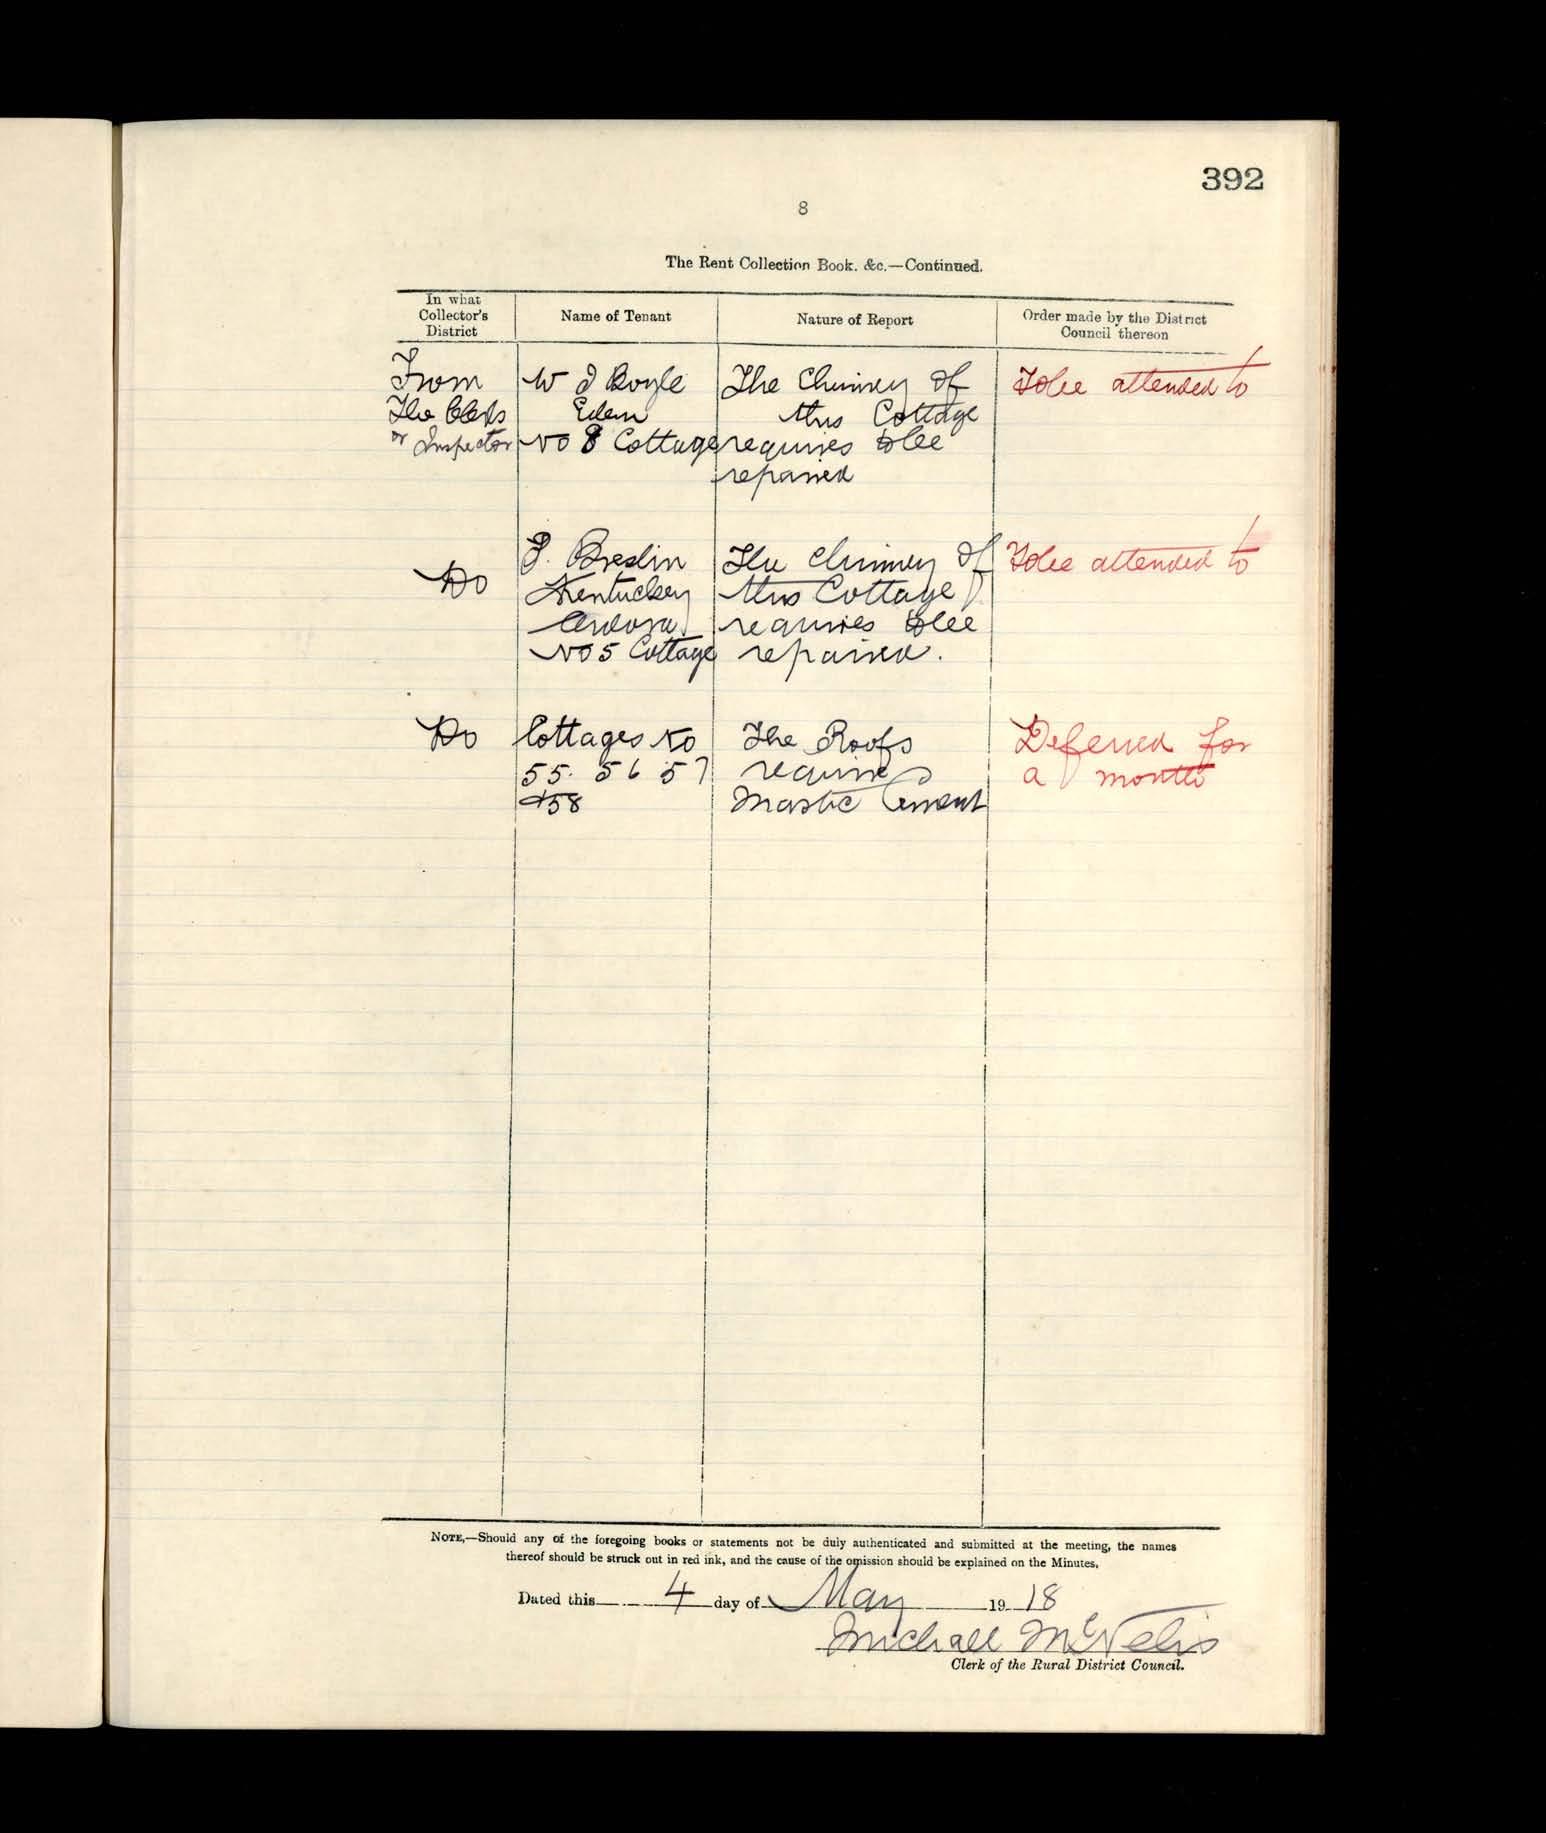 392
8
The Rent Collection Book, &c.—Continued.
In what Collector's District
Name of Tenant
Nature of Report
Order made by the District Council thereon
From
The Clerks
or Inspector
W J Boyle
Eden
No 8 Cottage
The Chimney of
this Cottage
requires to be
repaired
To be attended to
Do
P. Breslin
Kentuckey
Ardara
No 5 Cottage
The chimney of
this Cottage
requires to be
repaired.
To be attended to
Do
Cottages No
55. 56 57
& 58
The Roofs
require
Mastic Cement
Deferred for
a month
NOTE,—Should any of the foregoing books or statements not be duly authenticated and submitted at the meeting, the names
thereof should be struck out in red ink, and the cause of the omission should be explained on the Minutes.
Dated this 4 day of May 1918
Michael McNelis
Clerk of the Rural District Council.